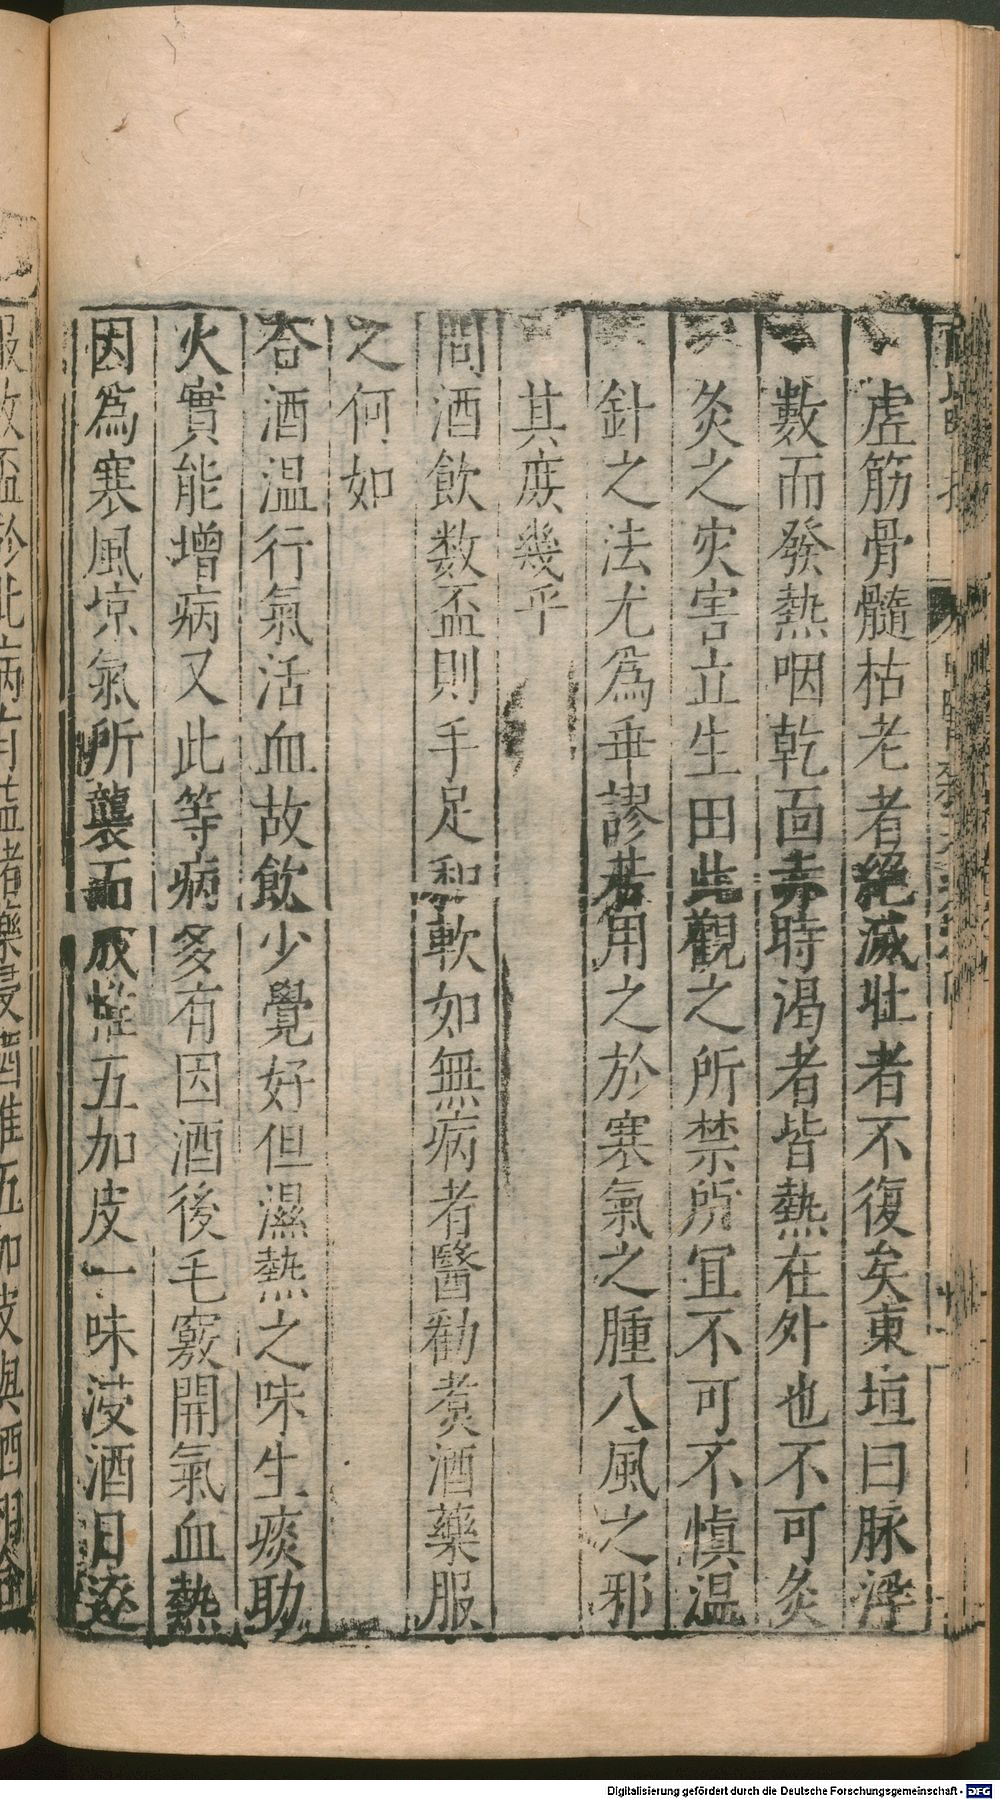 虛筋骨髓枯老者絕滅壯者不復矣東垣曰脉浮
數而發熱咽乾面赤時渴者皆熱在外也不可灸
灸之灾害立生田此觀之所禁所宜不可不慎温
針之法尤爲乖謬若用之於寒氣之腫八風之邪
其庶幾乎
問酒飲数盃則手足和軟如無病者醫勸煮酒藥服
之何如
荅酒温行氣活血故飲少覺好但濕熱之味生痰助
火實能增病又此等病多有因酒後毛竅開氣血熱
因爲寒風凉氣所襲而成惟五加皮一味浸酒日逐
Digitalisierung gefördert durch die Deutsche Forschungsgemeinschaft - DFG